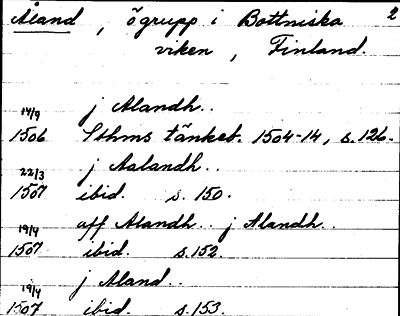 Åland, ögrupp i Bottniska 2
viken, Finland.
14/9 j Alandh..
1506 Sthms tänkeb. 1504-14, s. 126.
22/3 j Aalandh..
1507 ibid. s. 150.
19/4 aff Alandh.. j Alandh..
1507 ibid. s. 152.
19/4 j Aland..
1507 ibid. s. 153.